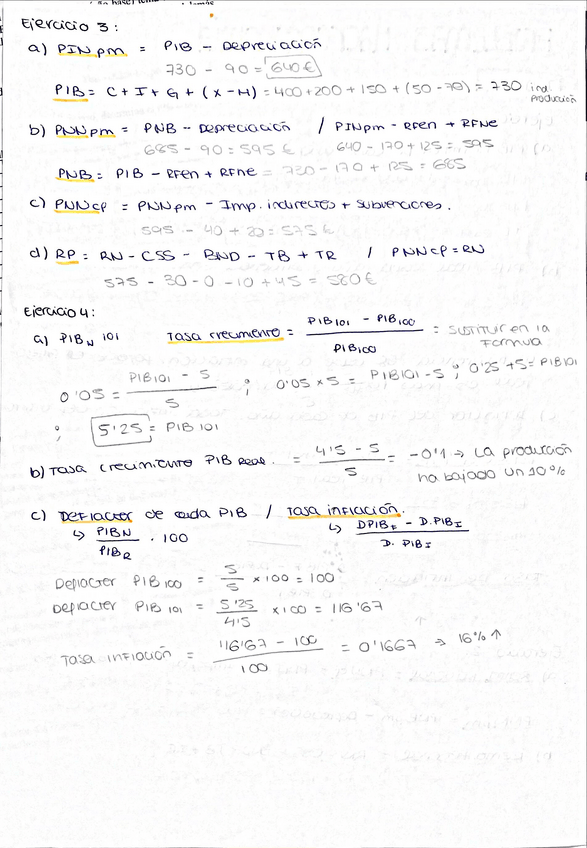 Ejercicio 3:
a) PINpm = PIB - Depreciación
730 - 90 = 640€
PIB = C + I + G + (X - M) = 400 + 200 + 150 + (50 - 70) = 730 ind. producción
b) PNNpm = PNB - Depreciación / PINpm - RFen + RFNe
685 - 90 = 595 € 640 - 170 + 125 = 595
PNB = PIB - RFen + RFne = 730 - 170 + 125 = 685
c) PNNcp = PNNpm - Imp. indirectos + subvenciones.
595 - 40 + 20 = 575€
d) RP = RN - CSS - BND - TB + TR / PNNcp = RN
575 - 30 - 0 - 10 + 45 = 580€
Ejercicio 4:
a) PIBN 101 Tasa crecimiento = PIB101 - PIB100 / PIB100 = sustituir en la formula
0'05 = PIB101 - 5 / 5 ; 0'05 x 5 = PIB101 - 5 ; 0'25 + 5 = PIB101
; 5'25 = PIB 101
b) Tasa crecimiento PIB Real. = 4'5 - 5 / 5 = -0'1 → La producción ha bajado un 10%
c) Deflacter de cada PIB / Tasa inflación.
↳ PIBN / PIBR . 100 ↳ DPIBF - D.PIBI / D. PIBI
Deflacter PIB 100 = 5 / 5 x 100 = 100
Deflacter PIB 101 = 5'25 / 4'5 x 100 = 116'67
Tasa inflación = 116'67 - 100 / 100 = 0'1667 → 16% ↑